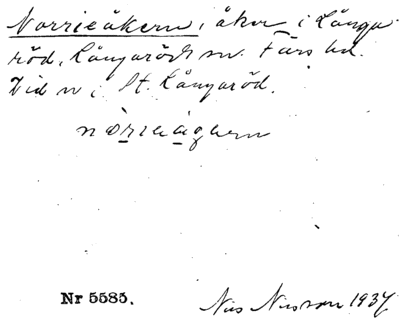 Norrieåkern, åker i Långa
röd, Långaröds sn. Färs hd.
Vid n i St. Långaröd.
Nr 5585. Nils Nilsson 1937